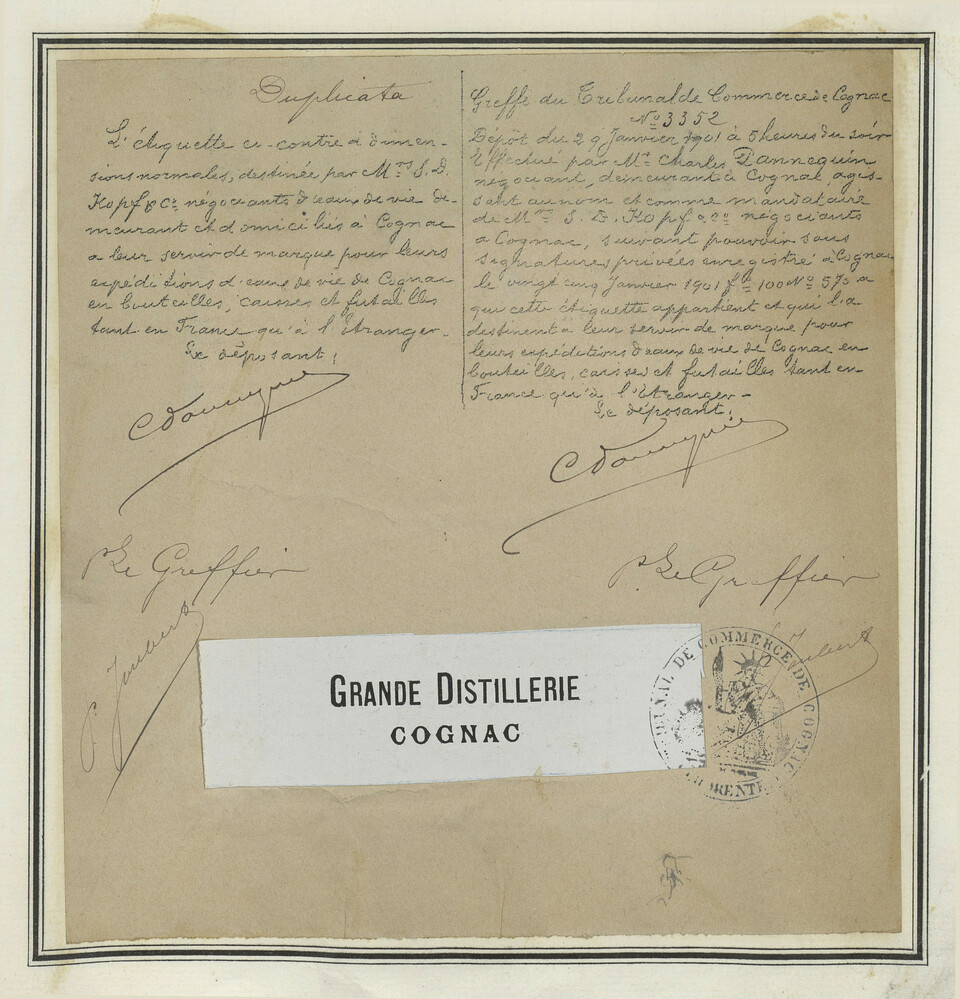 Duplicata
L'étiquette ci-contre à dimen-
sions normales, destinée par Mrs S. D.
Kopf & Ce négociants d'eaux de vie de-
meurant et domiciliés à Cognac
a leur servir de marque pour leurs
expéditions d'eaux de vie de Cognac
en bouteilles, caisses et futailles
tant en France qu'à l'Etranger-
Le déposant,
P Le Greffier
Joubert
Greffe du Tribunal de Commerce de Cognac
No 3352
Dépôt du 29 Janvier 1901 à 5 heures du soir
Effectué par Mr Charles Dannequin
négociant, demeurant à Cognac, agis-
sant au nom et comme mandataire
de Mrs S. D. Kopf & Ce négociants
a Cognac, suivant pouvoir sous
signatures privées enregistré à Cognac
le vingt cinq Janvier 1901 fo 100 No 573 a
que cette étiquette appartient et qui l'a
destinent a leur servir de marque pour
leurs expéditions d'eaux de vie de Cognac en
bouteilles, caisses et futailles tant en-
France qu'à l'Etranger-
Le déposant,
P Le Greffier
Joubert
GRANDE DISTILLERIE
COGNAC
TRIBUNAL DE COMMERCE DE COGNAC
CHARENTE